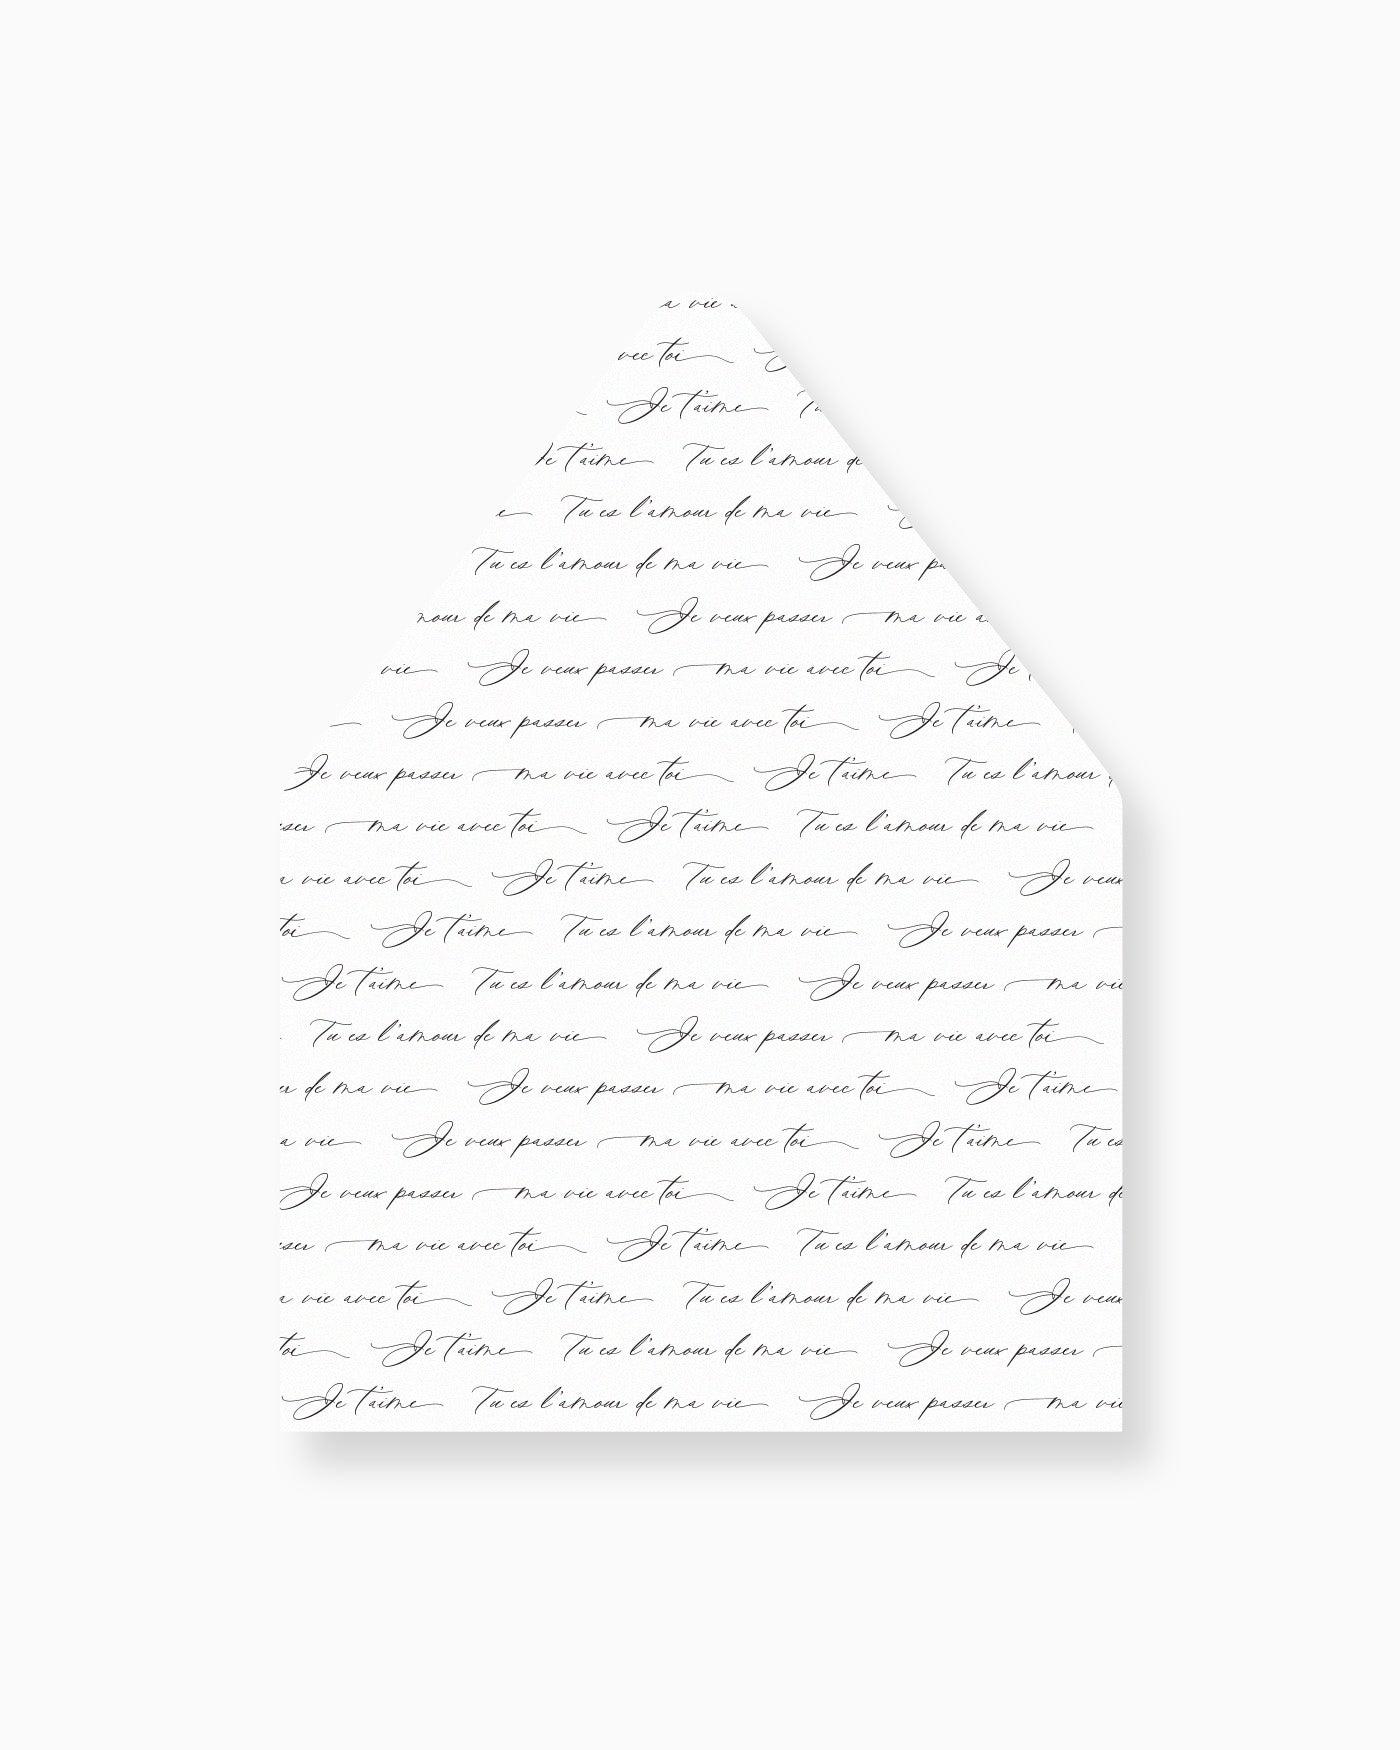 a vie
vec toi
Je t'aime
Je t'aime Tu es l'amour de
e Tu es l'amour de ma vie
Tu es l'amour de ma vie Je veux pa
mour de ma vie Je veux passer ma vie a
vie Je veux passer ma vie avec toi Je
Je veux passer ma vie avec toi Je t'aime
Je veux passer ma vie avec toi Je t'aime Tu es l'amour
sser ma vie avec toi Je t'aime Tu es l'amour de ma vie
a vie avec toi Je t'aime Tu es l'amour de ma vie Je veux
toi Je t'aime Tu es l'amour de ma vie Je veux passer
Je t'aime Tu es l'amour de ma vie Je veux passer ma vie
Tu es l'amour de ma vie Je veux passer ma vie avec toi
ur de ma vie Je veux passer ma vie avec toi Je t'aime
a vie Je veux passer ma vie avec toi Je t'aime Tu es
Je veux passer ma vie avec toi Je t'aime Tu es l'amour de
sser ma vie avec toi Je t'aime Tu es l'amour de ma vie
a vie avec toi Je t'aime Tu es l'amour de ma vie Je veux
toi Je t'aime Tu es l'amour de ma vie Je veux passer
Je t'aime Tu es l'amour de ma vie Je veux passer ma vie